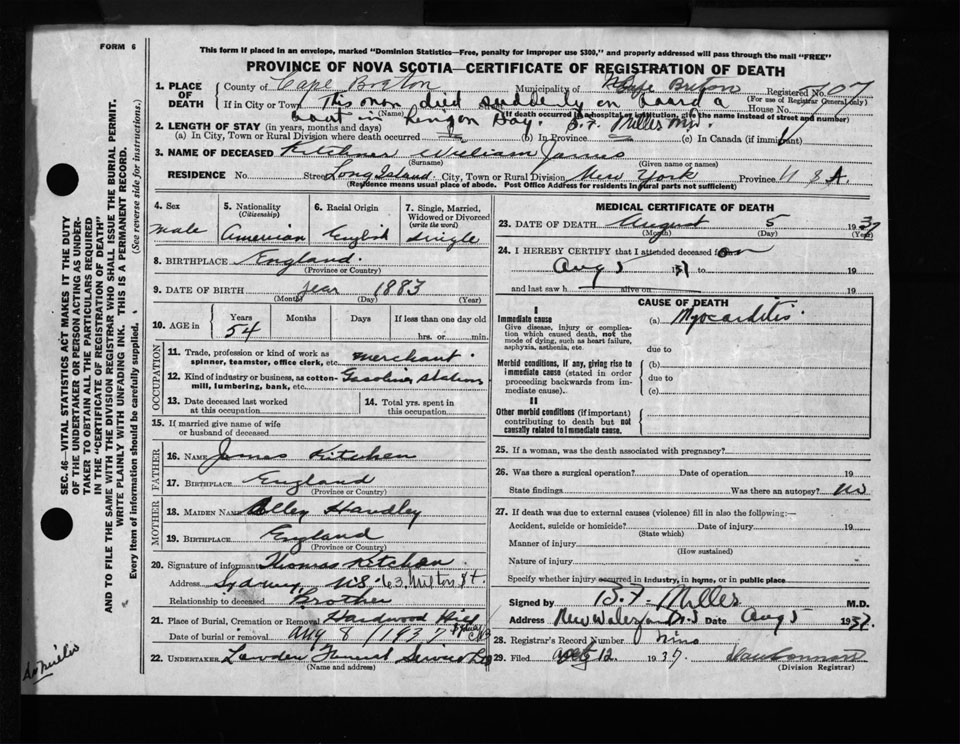 FORM 6
This form if placed in an envelope, marked "Dominion Statistics—Free, penalty for improper use $300," and properly addressed will pass through the mail "FREE"
PROVINCE OF NOVA SCOTIA—CERTIFICATE OF REGISTRATION OF DEATH
1. PLACE OF DEATH
County of Cape Breton Municipality of Cape Breton Registered No. 07
(For use of Registrar General only)
If in City or Town This man died suddenly on board a House No.
(Name) (If death occurred in a hospital or institution, give the name instead of street and number)
boat in Lingan Bay. B.F. Miller M.D.
2. LENGTH OF STAY (in years, months and days)
(a) In City, Town or Rural Division where death occurred (b) In Province (c) In Canada (if immigrant)
3. NAME OF DECEASED Kitchner William James
(Surname) (Given name or names)
RESIDENCE No. Street Long Island. City, Town or Rural Division New York Province U S A.
(Residence means usual place of abode. Post Office Address for residents in rural parts not sufficient)
4. Sex male
5. Nationality (Citizenship) American
6. Racial Origin English
7. Single, Married, Widowed or Divorced (write the word) single
8. BIRTHPLACE England.
(Province or Country)
9. DATE OF BIRTH year 1883
(Month) (Day) (Year)
10. AGE in Years 54 Months Days If less than one day old hrs. or min.
OCCUPATION
11. Trade, profession or kind of work as spinner, teamster, office clerk, etc. merchant
12. Kind of industry or business, as cotton-mill, lumbering, bank, etc. Gasoline station
13. Date deceased last worked at this occupation
14. Total yrs. spent in this occupation
15. If married give name of wife or husband of deceased
FATHER
16. Name James Kitchen
17. Birthplace England
(Province or Country)
MOTHER
18. MAIDEN NAME Handley
19. BIRTHPLACE England
(Province or Country)
20. Signature of informant Thomas Kitchen
Address Sydney, N.S. 63 Milton St.
Relationship to deceased Brother
21. Place of Burial, Cremation or Removal Hardwood Hill
Date of burial or removal Aug 8 1937
22. UNDERTAKER Funeral Service
(Name and address)
MEDICAL CERTIFICATE OF DEATH
23. DATE OF DEATH August 5 1937
(Month) (Day) (Year)
24. I HEREBY CERTIFY that I attended deceased on
Aug 5 19 to 19
and last saw h alive on 19
CAUSE OF DEATH
I
Immediate cause
Give disease, injury or complication which caused death, not the mode of dying, such as heart failure, asphyxia, asthenia, etc.
(a) Myocarditis
due to
Morbid conditions, if any, giving rise to immediate cause (stated in order proceeding backwards from immediate cause).
(b)
due to
(c)
II
Other morbid conditions (if important) contributing to death but not causally related to immediate cause.
25. If a woman, was the death associated with pregnancy?
26. Was there a surgical operation? Date of operation 19
State findings Was there an autopsy? No
27. If death was due to external causes (violence) fill in also the following:—
Accident, suicide or homicide? Date of injury 19
(State which)
Manner of injury
(How sustained)
Nature of injury
Specify whether injury occurred in industry, in home, or in public place
Signed by B.F. Miller M.D.
Address New Waterford N.S. Date Aug 5 1937.
28. Registrar's Record Number Nine
29. Filed 12 1937
(Division Registrar)
SEC. 46—VITAL STATISTICS ACT MAKES IT THE DUTY
OF THE UNDERTAKER OR PERSON ACTING AS UNDER-
TAKER TO OBTAIN ALL THE PARTICULARS REQUIRED
IN THE "CERTIFICATE OF REGISTRATION OF DEATH"
AND TO FILE THE SAME WITH THE DIVISION REGISTRAR WHO SHALL ISSUE THE BURIAL PERMIT.
WRITE PLAINLY WITH UNFADING INK. THIS IS A PERMANENT RECORD.
Every item of Information should be carefully supplied. (See reverse side for instructions.)